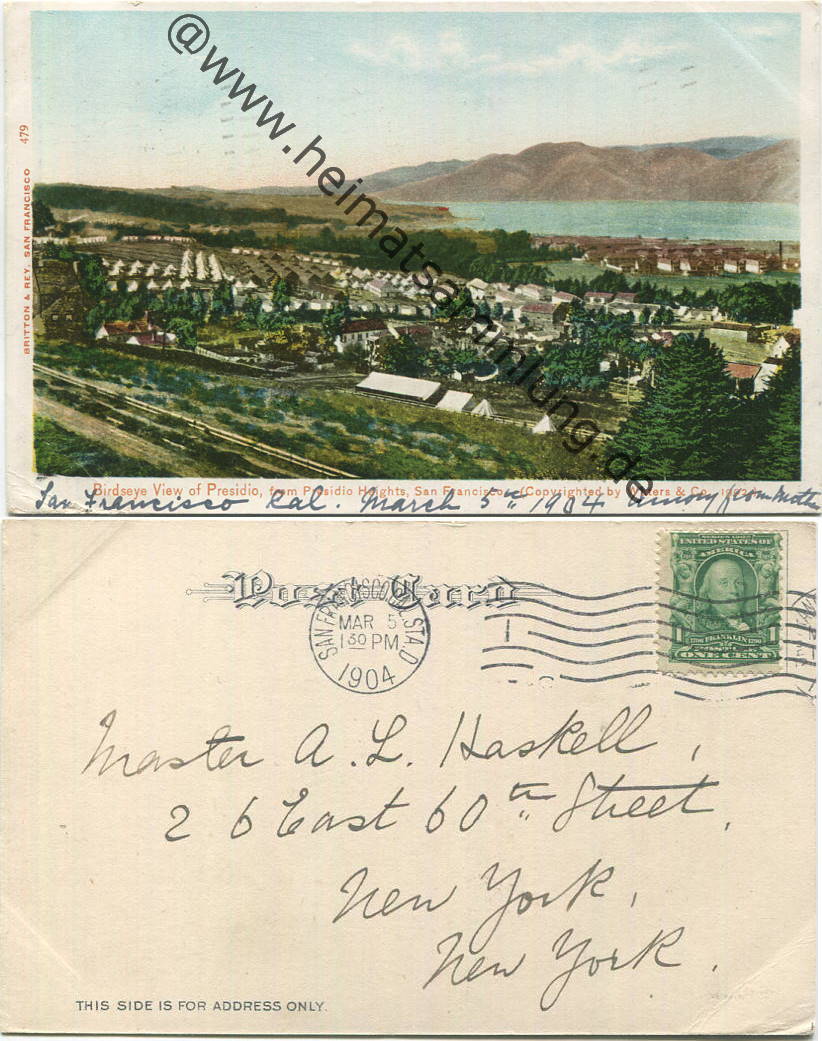 @www.heimatsammlung.de
479
BRITTON & REY, SAN FRANCISCO
Birdseye View of Presidio, from Presidio Heights, San Francisco. (Copyrighted by & Co.
San Francisco Cal. March 5th 1904
Post Card
SAN FRANCISCO, CAL. STA. D
MAR 5
1 30 PM
1904
SERIES 1902
UNITED STATES OF
AMERICA
1 FRANKLIN 1
ONE CENT
Master A. L. Haskell,
26 East 60th Street,
New York,
New York.
THIS SIDE IS FOR ADDRESS ONLY.